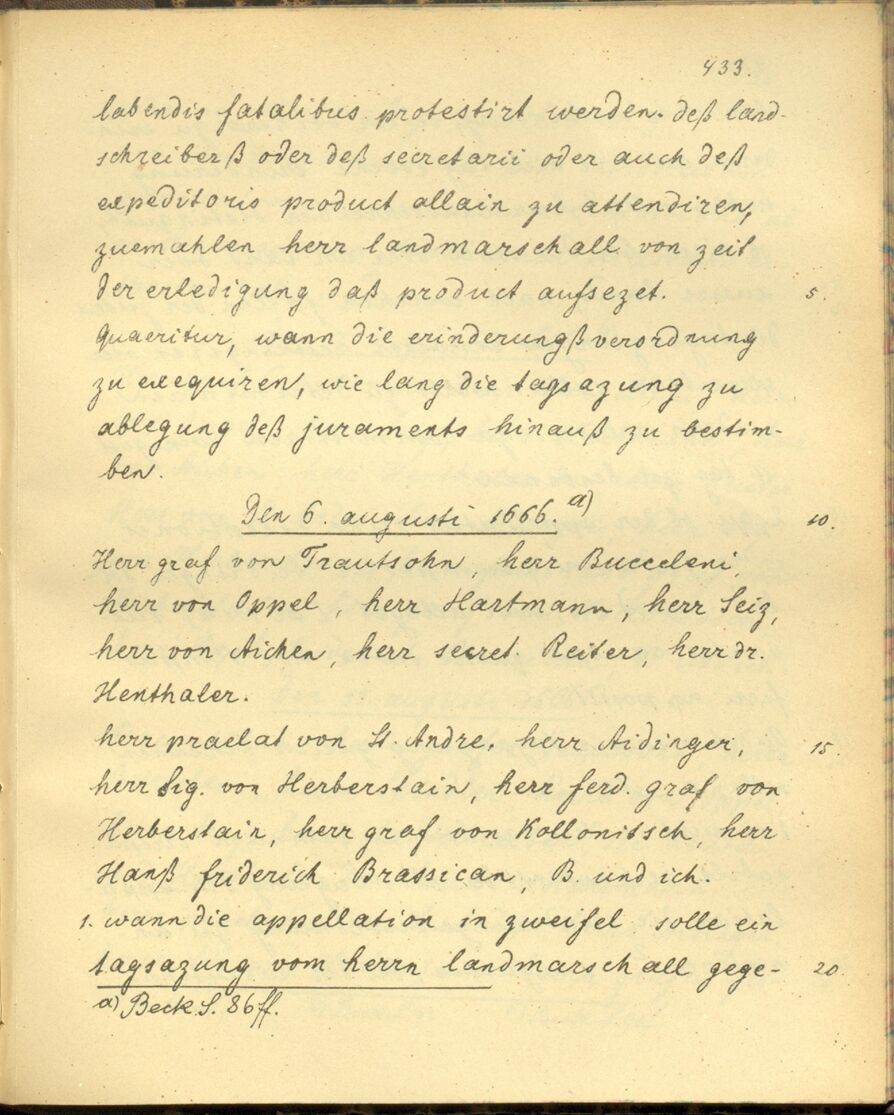 433.
labendis fatalibus protestirt werden. deß land-
schreiberß oder deß secretarii oder auch deß
expeditoris product allain zu attendiren,
zuemahlen herr landmarschall von zeit
der erledigung daß product aufsezet. 5.
Quaeritur, wann die erinderungßverordnung
zu exequiren, wie lang die tagsazung zu
ablegung deß juraments hinauß zu bestim-
ben.
Den 6. augusti 1666. a) 10.
Herr graf von Trautsohn, herr Bucceleni,
herr von Oppel, herr Hartmann, herr Seiz,
herr von Aichen, herr secret. Reiter, herr dr.
Henthaler.
herr praelat von St. Andre, herr Aidinger, 15.
herr Sig. von Herberstain, herr ferd. graf von
Herberstain, herr graf von Kollonitsch, herr
Hanß friderich Brassican, B. und ich.
1. wann die appellation in zweifel solle ein
tagsazung vom herrn landmarschall gege- 20.
a) Beck S. 86 ff.